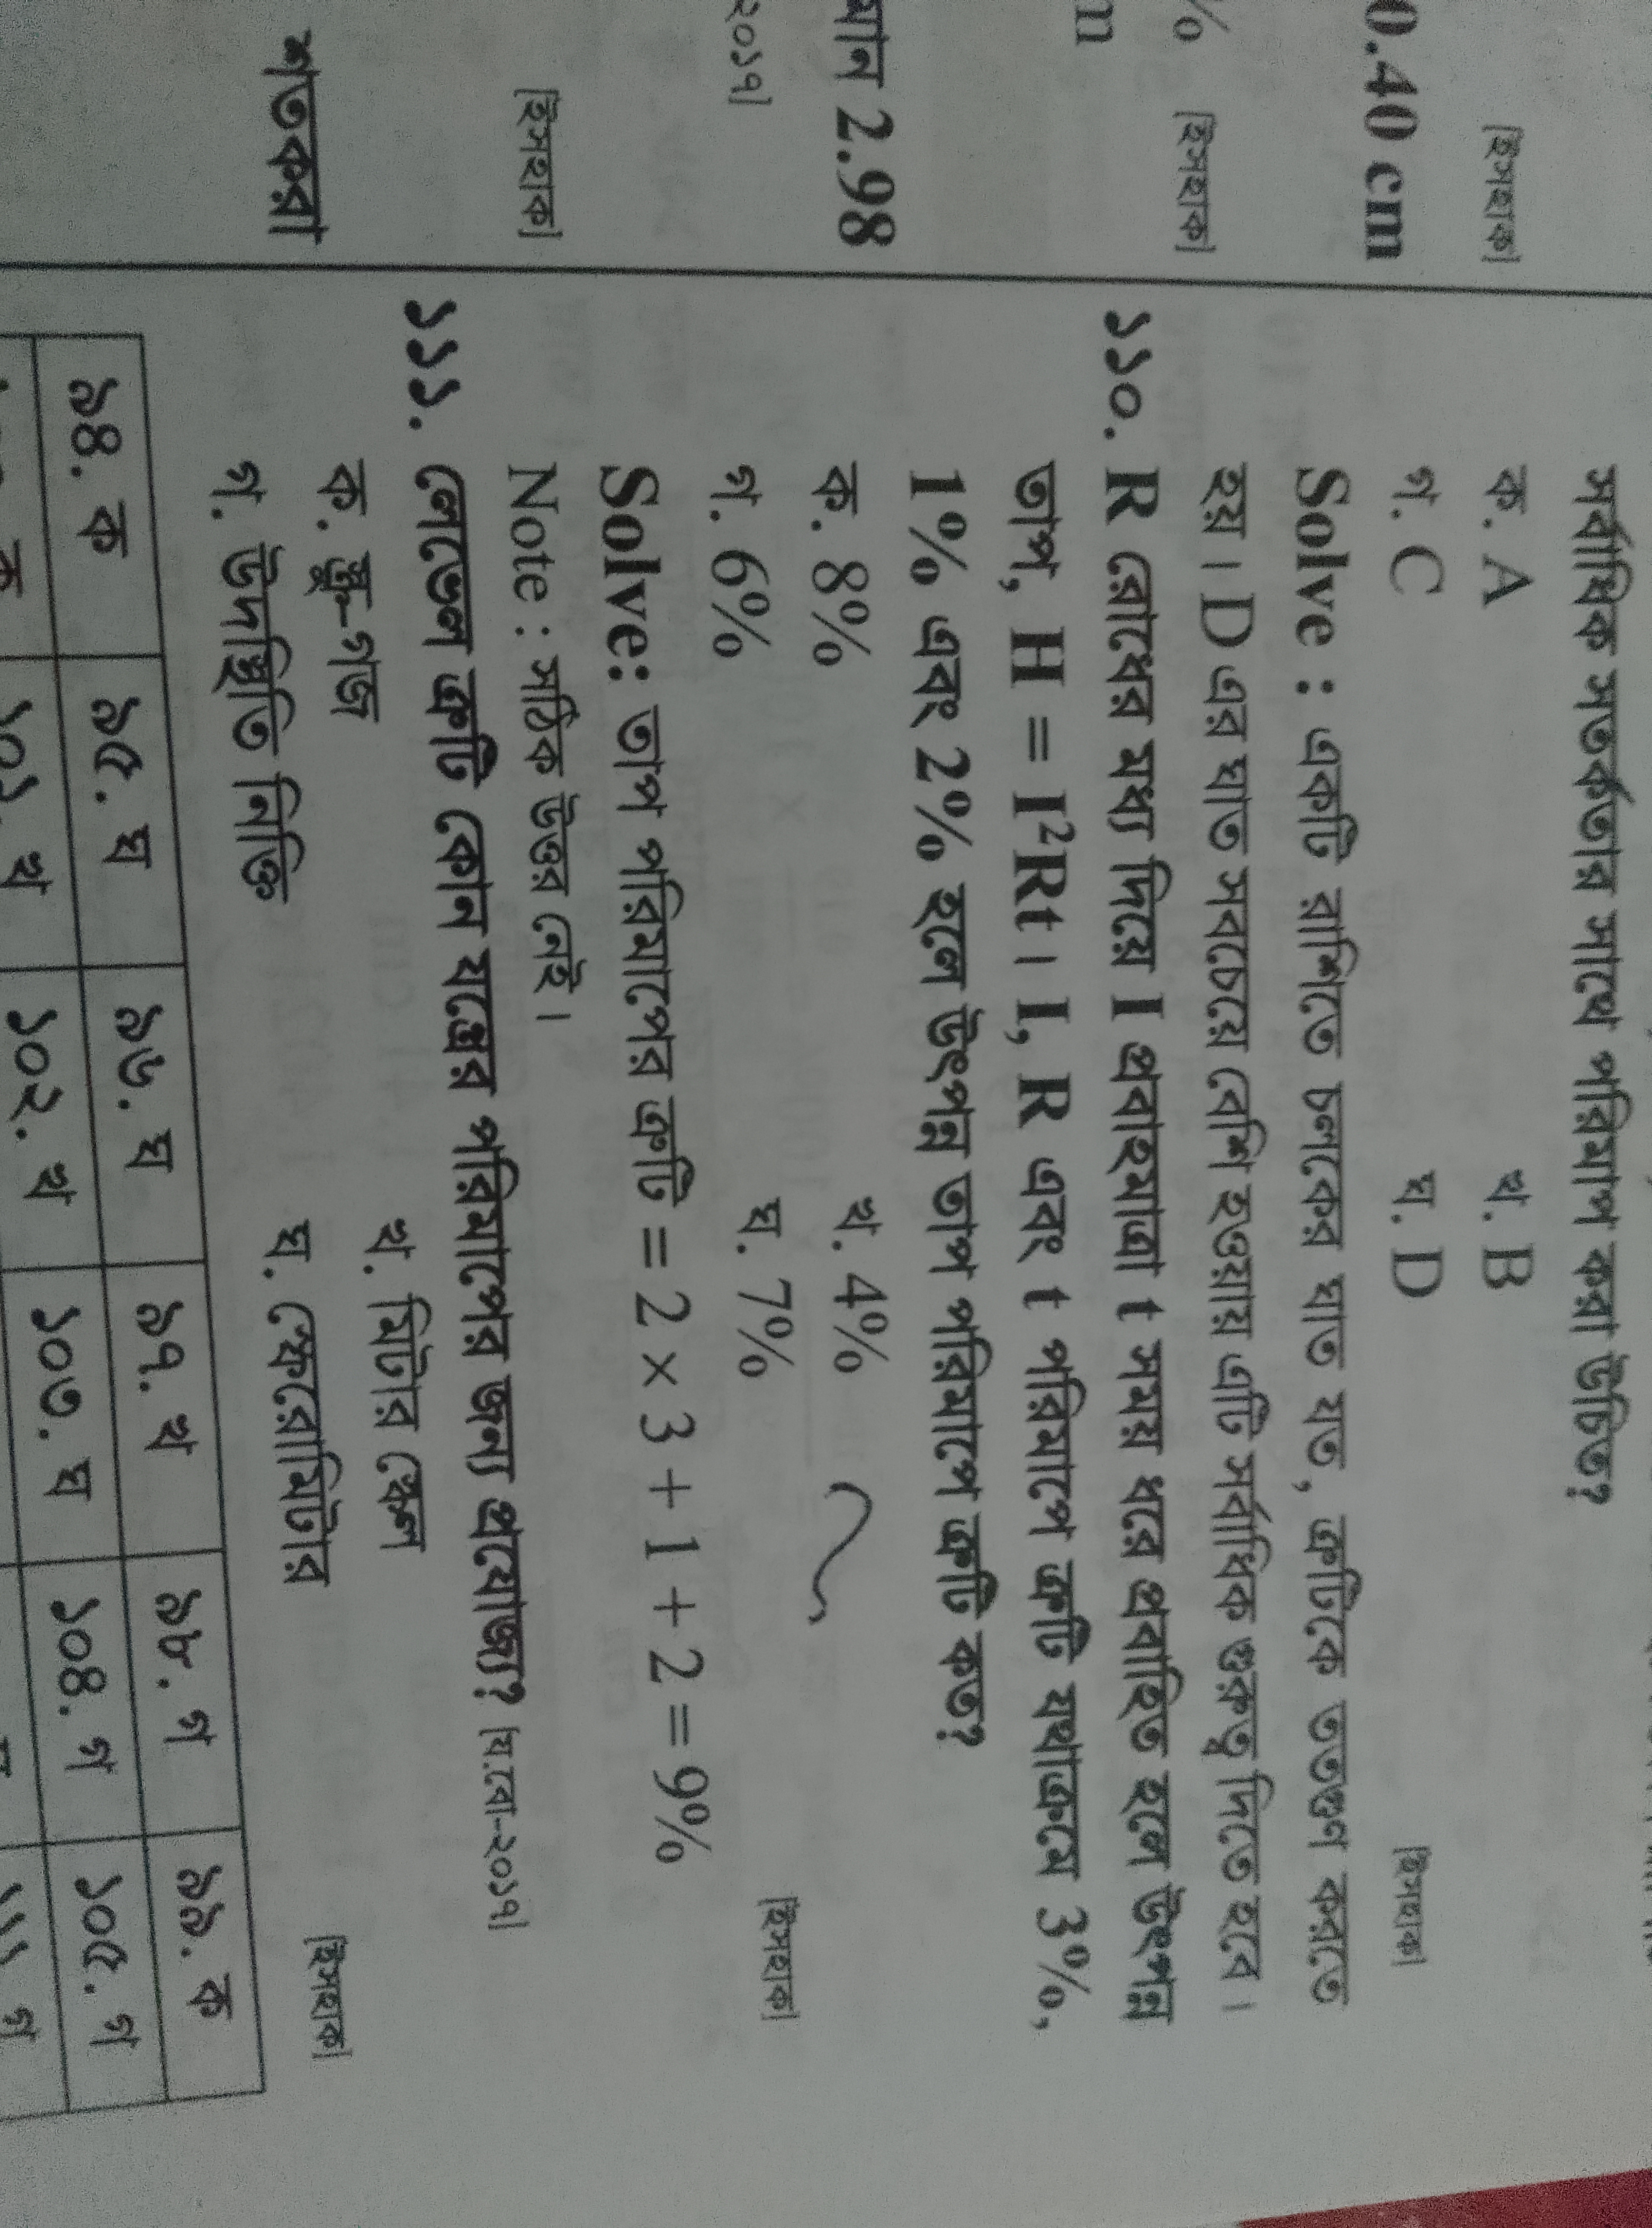 0.40 cm
[ইসহাক]
%
[ইসহাক]
m
মান 2.98
২০১৭]
[ইসহাক]
শতকরা
সর্বাধিক সতর্কতার সাথে পরিমাপ করা উচিত?
ক. A খ. B
গ. C ঘ. D [ইসহাক]
Solve : একটি রাশিতে চলকের ঘাত যত, ত্রুটিকে ততগুণ করতে
হয়। D এর ঘাত সবচেয়ে বেশি হওয়ায় এটি সর্বাধিক গুরুত্ব দিতে হবে।
১১০. R রোধের মধ্য দিয়ে I প্রবাহমাত্রা t সময় ধরে প্রবাহিত হলে উৎপন্ন
তাপ, H = I²Rt। I, R এবং t পরিমাপে ত্রুটি যথাক্রমে 3%,
1% এবং 2% হলে উৎপন্ন তাপ পরিমাপে ত্রুটি কত?
ক. 8% খ. 4%
গ. 6% ঘ. 7% [ইসহাক]
Solve: তাপ পরিমাপের ত্রুটি = 2 × 3 + 1 + 2 = 9%
Note : সঠিক উত্তর নেই।
১১১. লেভেল ত্রুটি কোন যন্ত্রের পরিমাপের জন্য প্রযোজ্য? [য.বো-২০১৭]
ক. স্ক্রু-গজ খ. মিটার স্কেল
গ. উদস্থিতি নিক্তি ঘ. স্ফেরোমিটার [ইসহাক]
৯৪. ক ৯৫. ঘ ৯৬. ঘ ৯৭. খ ৯৮. গ ৯৯. ক
১০১. খ ১০২. খ ১০৩. ঘ ১০৪. গ ১০৫. গ